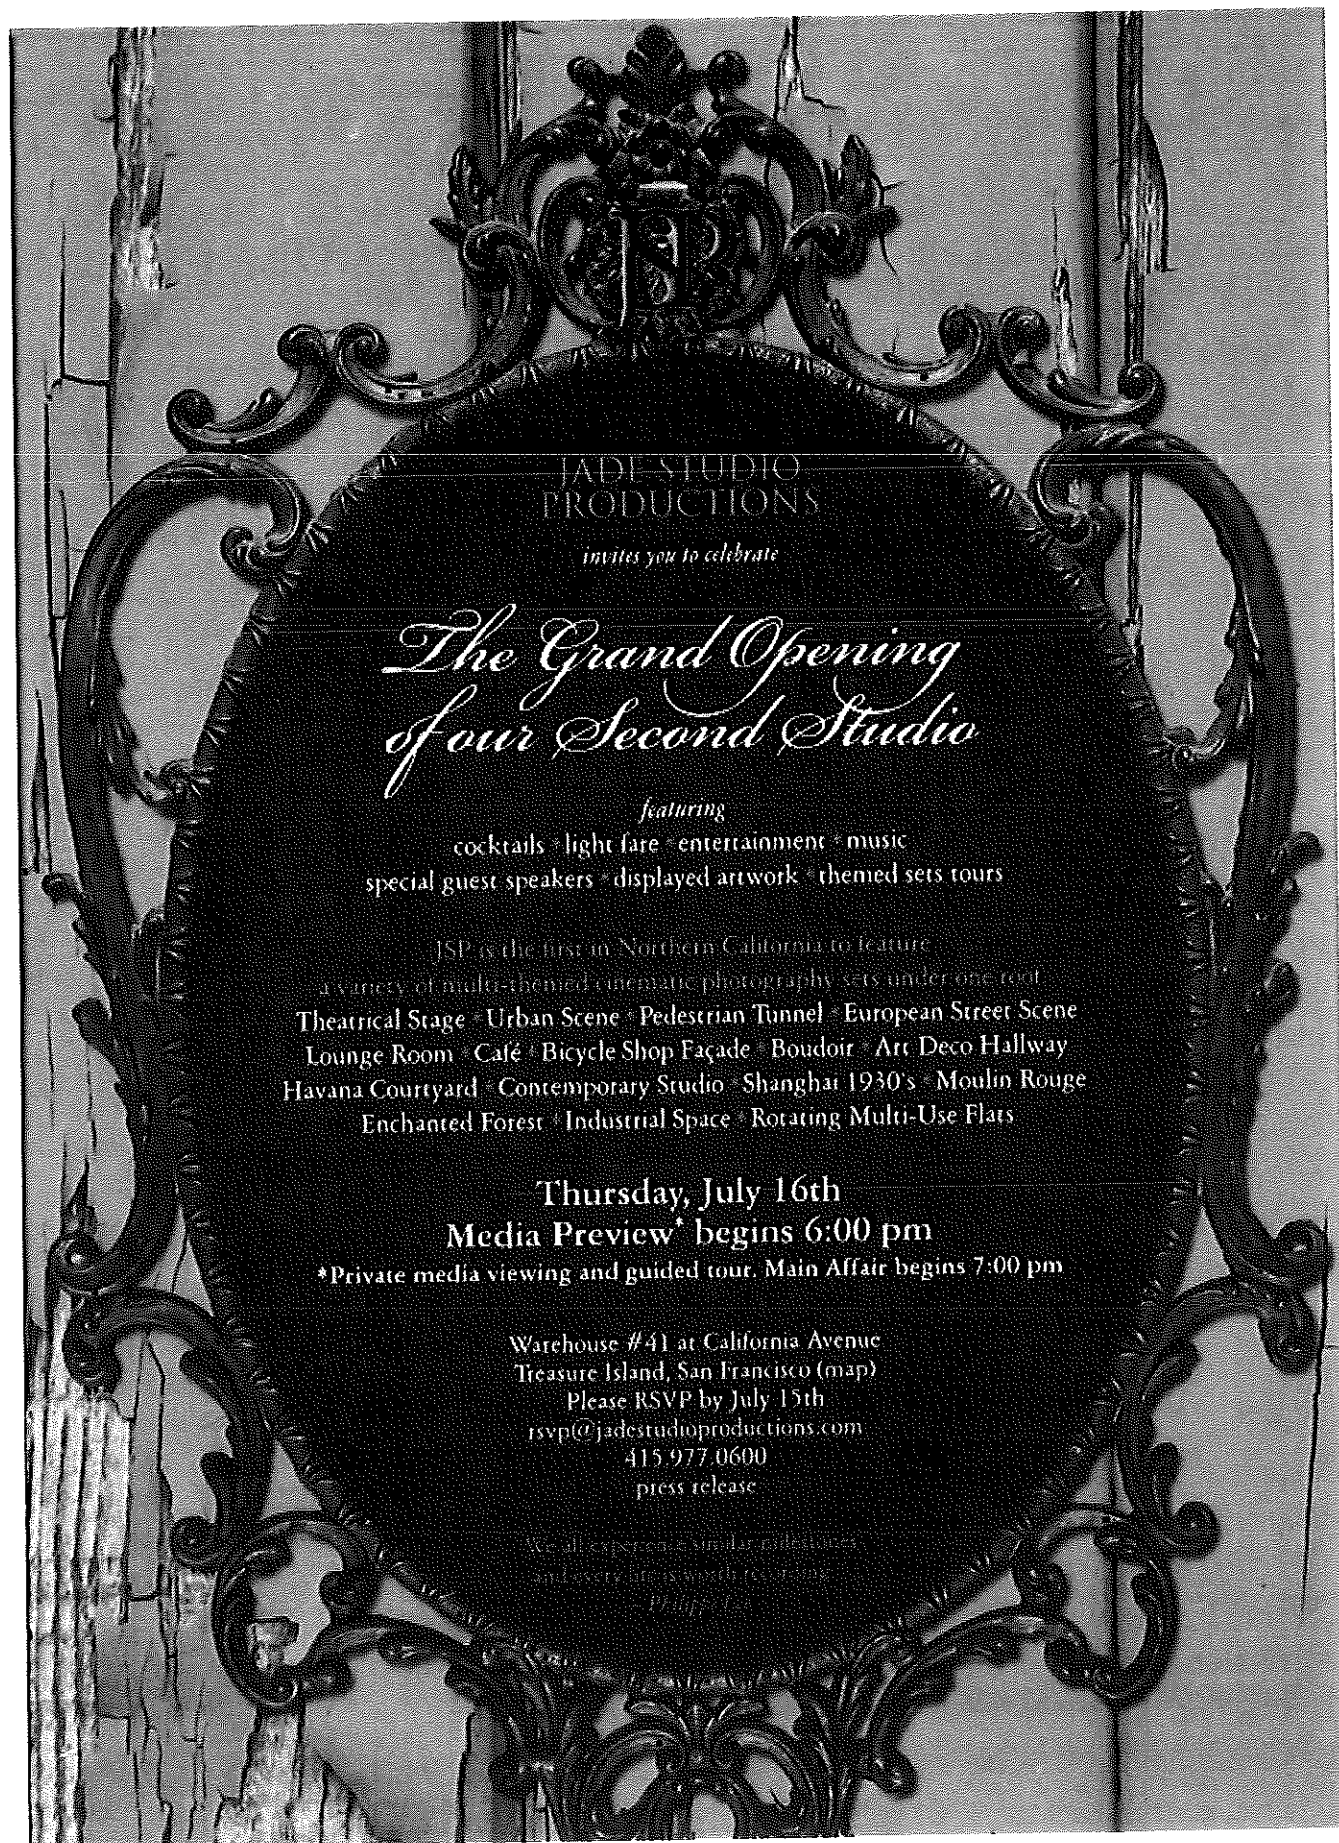 JSP
JADE STUDIO
PRODUCTIONS
invites you to celebrate
The Grand Opening
of our Second Studio
featuring
cocktails * light fare * entertainment * music
special guest speakers * displayed artwork * themed sets tours
JSP is the first in Northern California to feature
a variety of multi-themed cinematic photography sets under one roof
Theatrical Stage * Urban Scene * Pedestrian Tunnel * European Street Scene
Lounge Room * Café * Bicycle Shop Façade * Boudoir * Art Deco Hallway
Havana Courtyard * Contemporary Studio * Shanghai 1930's * Moulin Rouge
Enchanted Forest * Industrial Space * Rotating Multi-Use Flats
Thursday, July 16th
Media Preview* begins 6:00 pm
*Private media viewing and guided tour. Main Affair begins 7:00 pm
Warehouse #41 at California Avenue
Treasure Island, San Francisco (map)
Please RSVP by July 15th
rsvp@jadestudioproductions.com
415.977.0600
press release
We all experience similar milestones
and every life is worth